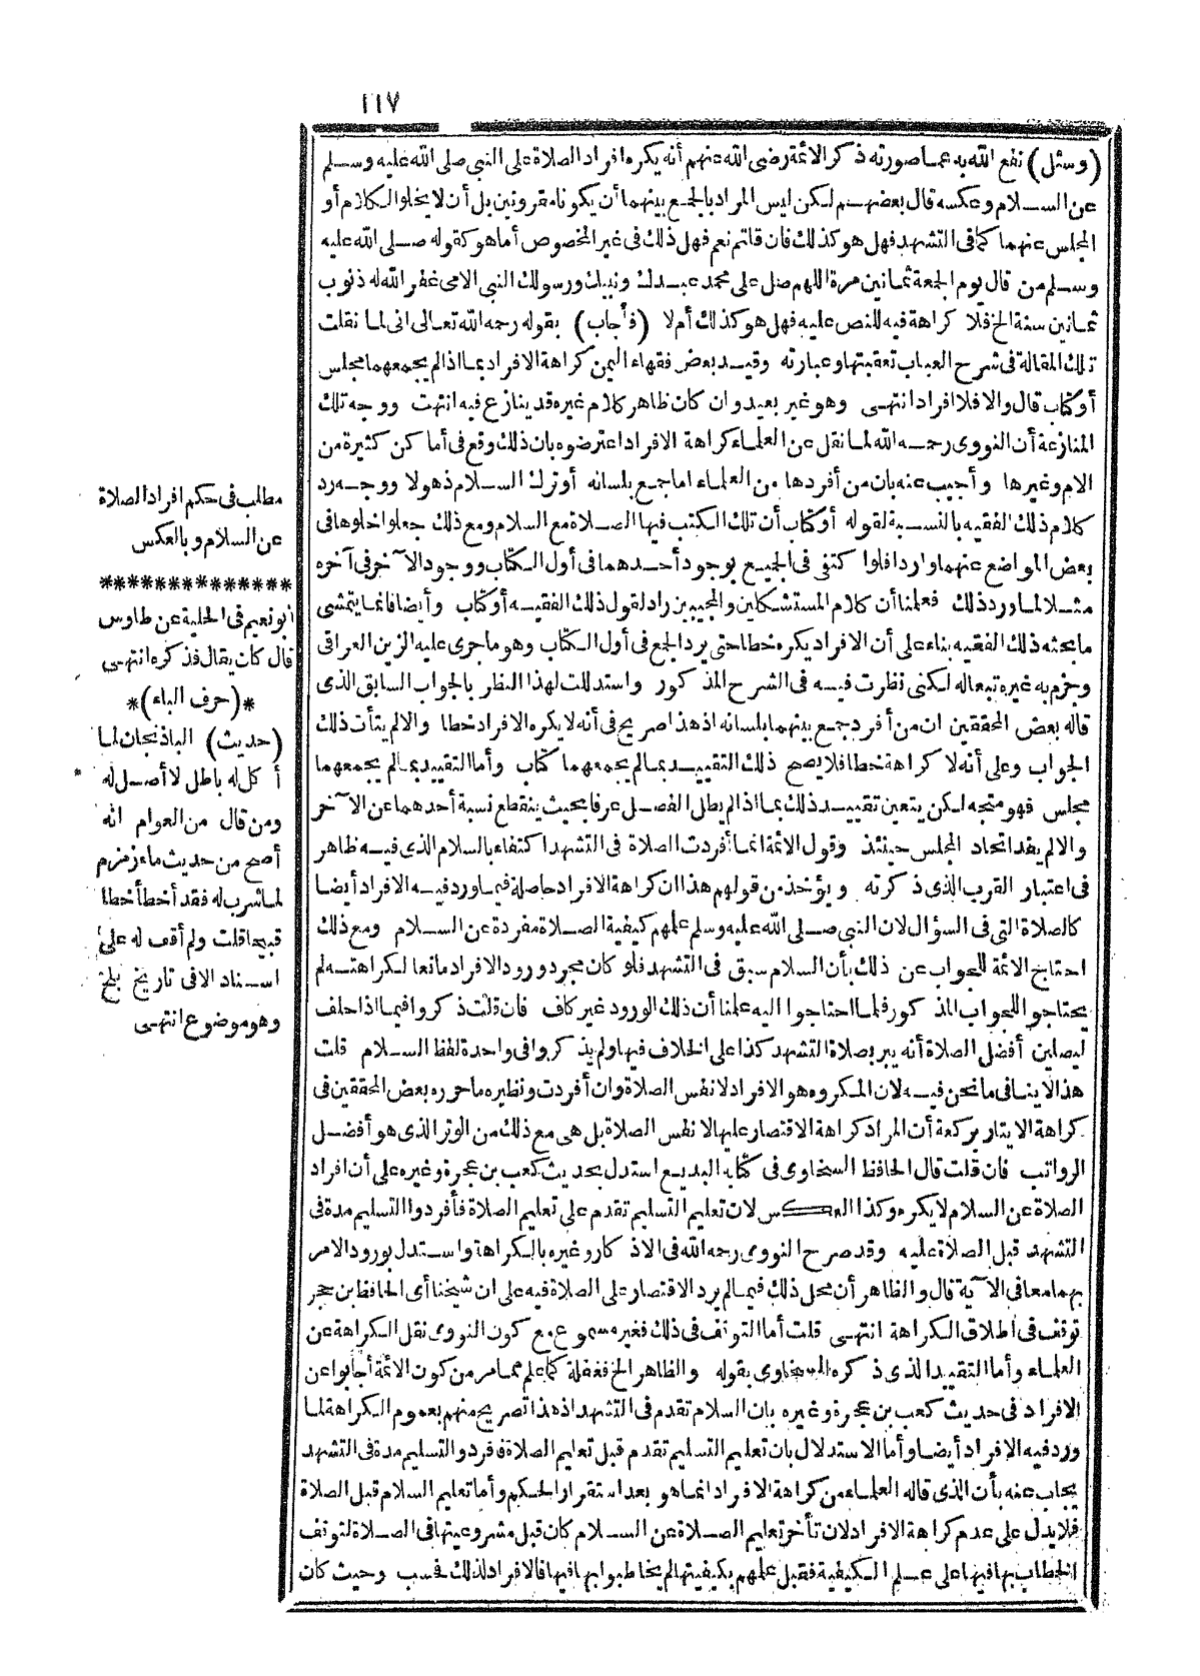 ١١٧
(وسئل) نفع الله به عما صورته ذكر الائمة رضى الله عنهم أنه يكره افراد الصلاة على النبي صلى الله عليه وسلم
عن السلام وعكسه قال بعضهم لكن ليس المراد بالجمع بينهما أن يكونا مقرونين بل أن لا يخلو الكلام أو
المجلس عنهما كما فى التشهد فهل هو كذلك فان قلتم نعم فهل ذلك فى غير المخصوص أما هو كقوله صلى الله عليه
وسلم من قال يوم الجمعة ثمانين مرة اللهم صل على محمد عبدك ونبيك ورسولك النبي الامى غفر الله له ذنوب
ثمانين سنة الخ فلا كراهة فيه للنص عليه فهل هو كذلك أم لا (فأجاب) بقوله رحمه الله تعالى انى لما نقلت
تلك المقالة فى شرح العباب تعقبتها وعبارته وقيد بعض فقهاء اليمن كراهة الافراد بما اذا لم يجمعهما مجلس
أو كتاب قال والا فلا افراد انتهى وهو غير بعيد وان كان ظاهر كلام غيره قد ينازع فيه انتهت ووجه تلك
المنازعة أن النووى رحمه الله لما نقل عن العلماء كراهة الافراد اعترضوه بان ذلك وقع فى أماكن كثيرة من
الام وغيرها وأجيب عنه بان من أفردها من العلماء اما جمع بلسانه أو ترك السلام ذهولا ووجه رد
كلام ذلك الفقيه بالنسبة لقوله أو كتاب أن تلك الكتب فيها الصلاة مع السلام ومع ذلك جعلوا خلوها فى
بعض المواضع عنهما واردا فلوا كتفى فى الجميع بوجود أحدهما فى أول الكتاب ووجود الآخر فى آخره
مثلا لما ورد ذلك فعلمنا أن كلام المستشكلين والمجيبين راد لقول ذلك الفقيه أو كتاب وأيضا فانما يتمشى
ما بحثه ذلك الفقيه بناء على أن الافراد يكره خطا حتى يرد الجمع فى أول الكتاب وهو ما جرى عليه الزين العراقى
وجزم به غيره تبعا له لكنى نظرت فيه فى الشرح المذكور واستدللت لهذا النظر بالجواب السابق الذى
قاله بعض المحققين ان من أفرد جمع بينهما بلسانه اذ هذا صريح فى أنه لا يكره الافراد خطا والا لم يتأت ذلك
الجواب وعلى أنه لا كراهة خطا فلا يصح ذلك التقييد بما لم يجمعهما كتاب وأما التقييد بما لم يجمعهما
مجلس فهو متجه لكن يتعين تقييد ذلك بما اذا لم يطل الفصل عرفا بحيث ينقطع نسبة أحدهما عن الآخر
والا لم يفد اتحاد المجلس حينئذ وقول الائمة انما أفردت الصلاة فى التشهد اكتفاء بالسلام الذى فيه ظاهر
فى اعتبار القرب الذى ذكرته ويؤخذ من قولهم هذا ان كراهة الافراد حاصلة فيما ورد فيه الافراد أيضا
كالصلاة التى فى السؤال لان النبي صلى الله عليه وسلم علمهم كيفية الصلاة مفردة عن السلام ومع ذلك
احتاج الائمة للجواب عن ذلك بأن السلام سبق فى التشهد فلو كان مجرد ورود الافراد مانعا لكراهته لم
يحتاجوا للجواب المذكور فلما احتاجوا اليه علمنا أن ذلك الورود غير كاف فان قلت ذكروا فيما اذا حلف
ليصلين أفضل الصلاة أنه يبر بصلاة التشهد كذا على الخلاف فيها ولم يذكروا فى واحدة لفظ السلام قلت
هذا لا ينافى ما نحن فيه لان المكروه هو الافراد لا نفس الصلاة وان أفردت ونظيره ما حرره بعض المحققين فى
كراهة الايتار بركعة أن المراد كراهة الاقتصار عليها لا نفس الصلاة بل هى مع ذلك من الوتر الذى هو أفضل
الرواتب فان قلت قال الحافظ السخاوى فى كتابه البديع استدل بحديث كعب بن عجرة وغيره على أن افراد
الصلاة عن السلام لا يكره وكذا العكس لان تعليم التسليم تقدم على تعليم الصلاة فأفردوا التسليم مدة فى
التشهد قبل الصلاة عليه وقد صرح النووى رحمه الله فى الاذكار وغيره بالكراهة واستدل بورود الامر
بهما معا فى الآية قال والظاهر أن محل ذلك فيما لم يرد الاقتصار على الصلاة فيه على ان شيخنا أى الحافظ بن حجر
توقف فى اطلاق الكراهة انتهى قلت أما التوقف فى ذلك فغير مسموع مع كون النووى نقل الكراهة عن
العلماء وأما التقييد الذى ذكره السخاوى بقوله والظاهر الخ فغفلة كما علم مما مر من كون الائمة أجابوا عن
الافراد فى حديث كعب بن عجرة وغيره بان السلام تقدم فى التشهد اذ هذا تصريح منهم بعموم الكراهة لما
ورد فيه الافراد أيضا وأما الاستدلال بان تعليم التسليم تقدم قبل تعليم الصلاة فافردو التسليم مدة فى التشهد
يجاب عنه بأن الذى قاله العلماء من كراهة الافراد انما هو بعد استقرار الحكم وأما تعليم السلام قبل الصلاة
فلا يدل على عدم كراهة الافراد لان تأخر تعليم الصلاة عن السلام كان قبل مشروعيتها فى الصلاة لتوقف
الخطاب بها فيها على علم الكيفية فقبل علمهم بكيفيتها لم يخاطبوا بها فيها فالافراد لذلك فحسب وحيث كان
مطلب فى حكم افراد الصلاة
عن السلام وبالعكس
**************
أبو نعيم فى الحلية عن طاوس
قال كان يقال فذكره انتهى
*(حرف الباء)*
(حديث) الباذنجان لما
أكل له باطل لا أصل له
ومن قال من العوام انه
أصح من حديث ماء زمزم
لما شرب له فقد أخطأ خطا
قبيحا قلت ولم أقف له على
اسناد الا فى تاريخ بلخ
وهو موضوع انتهى